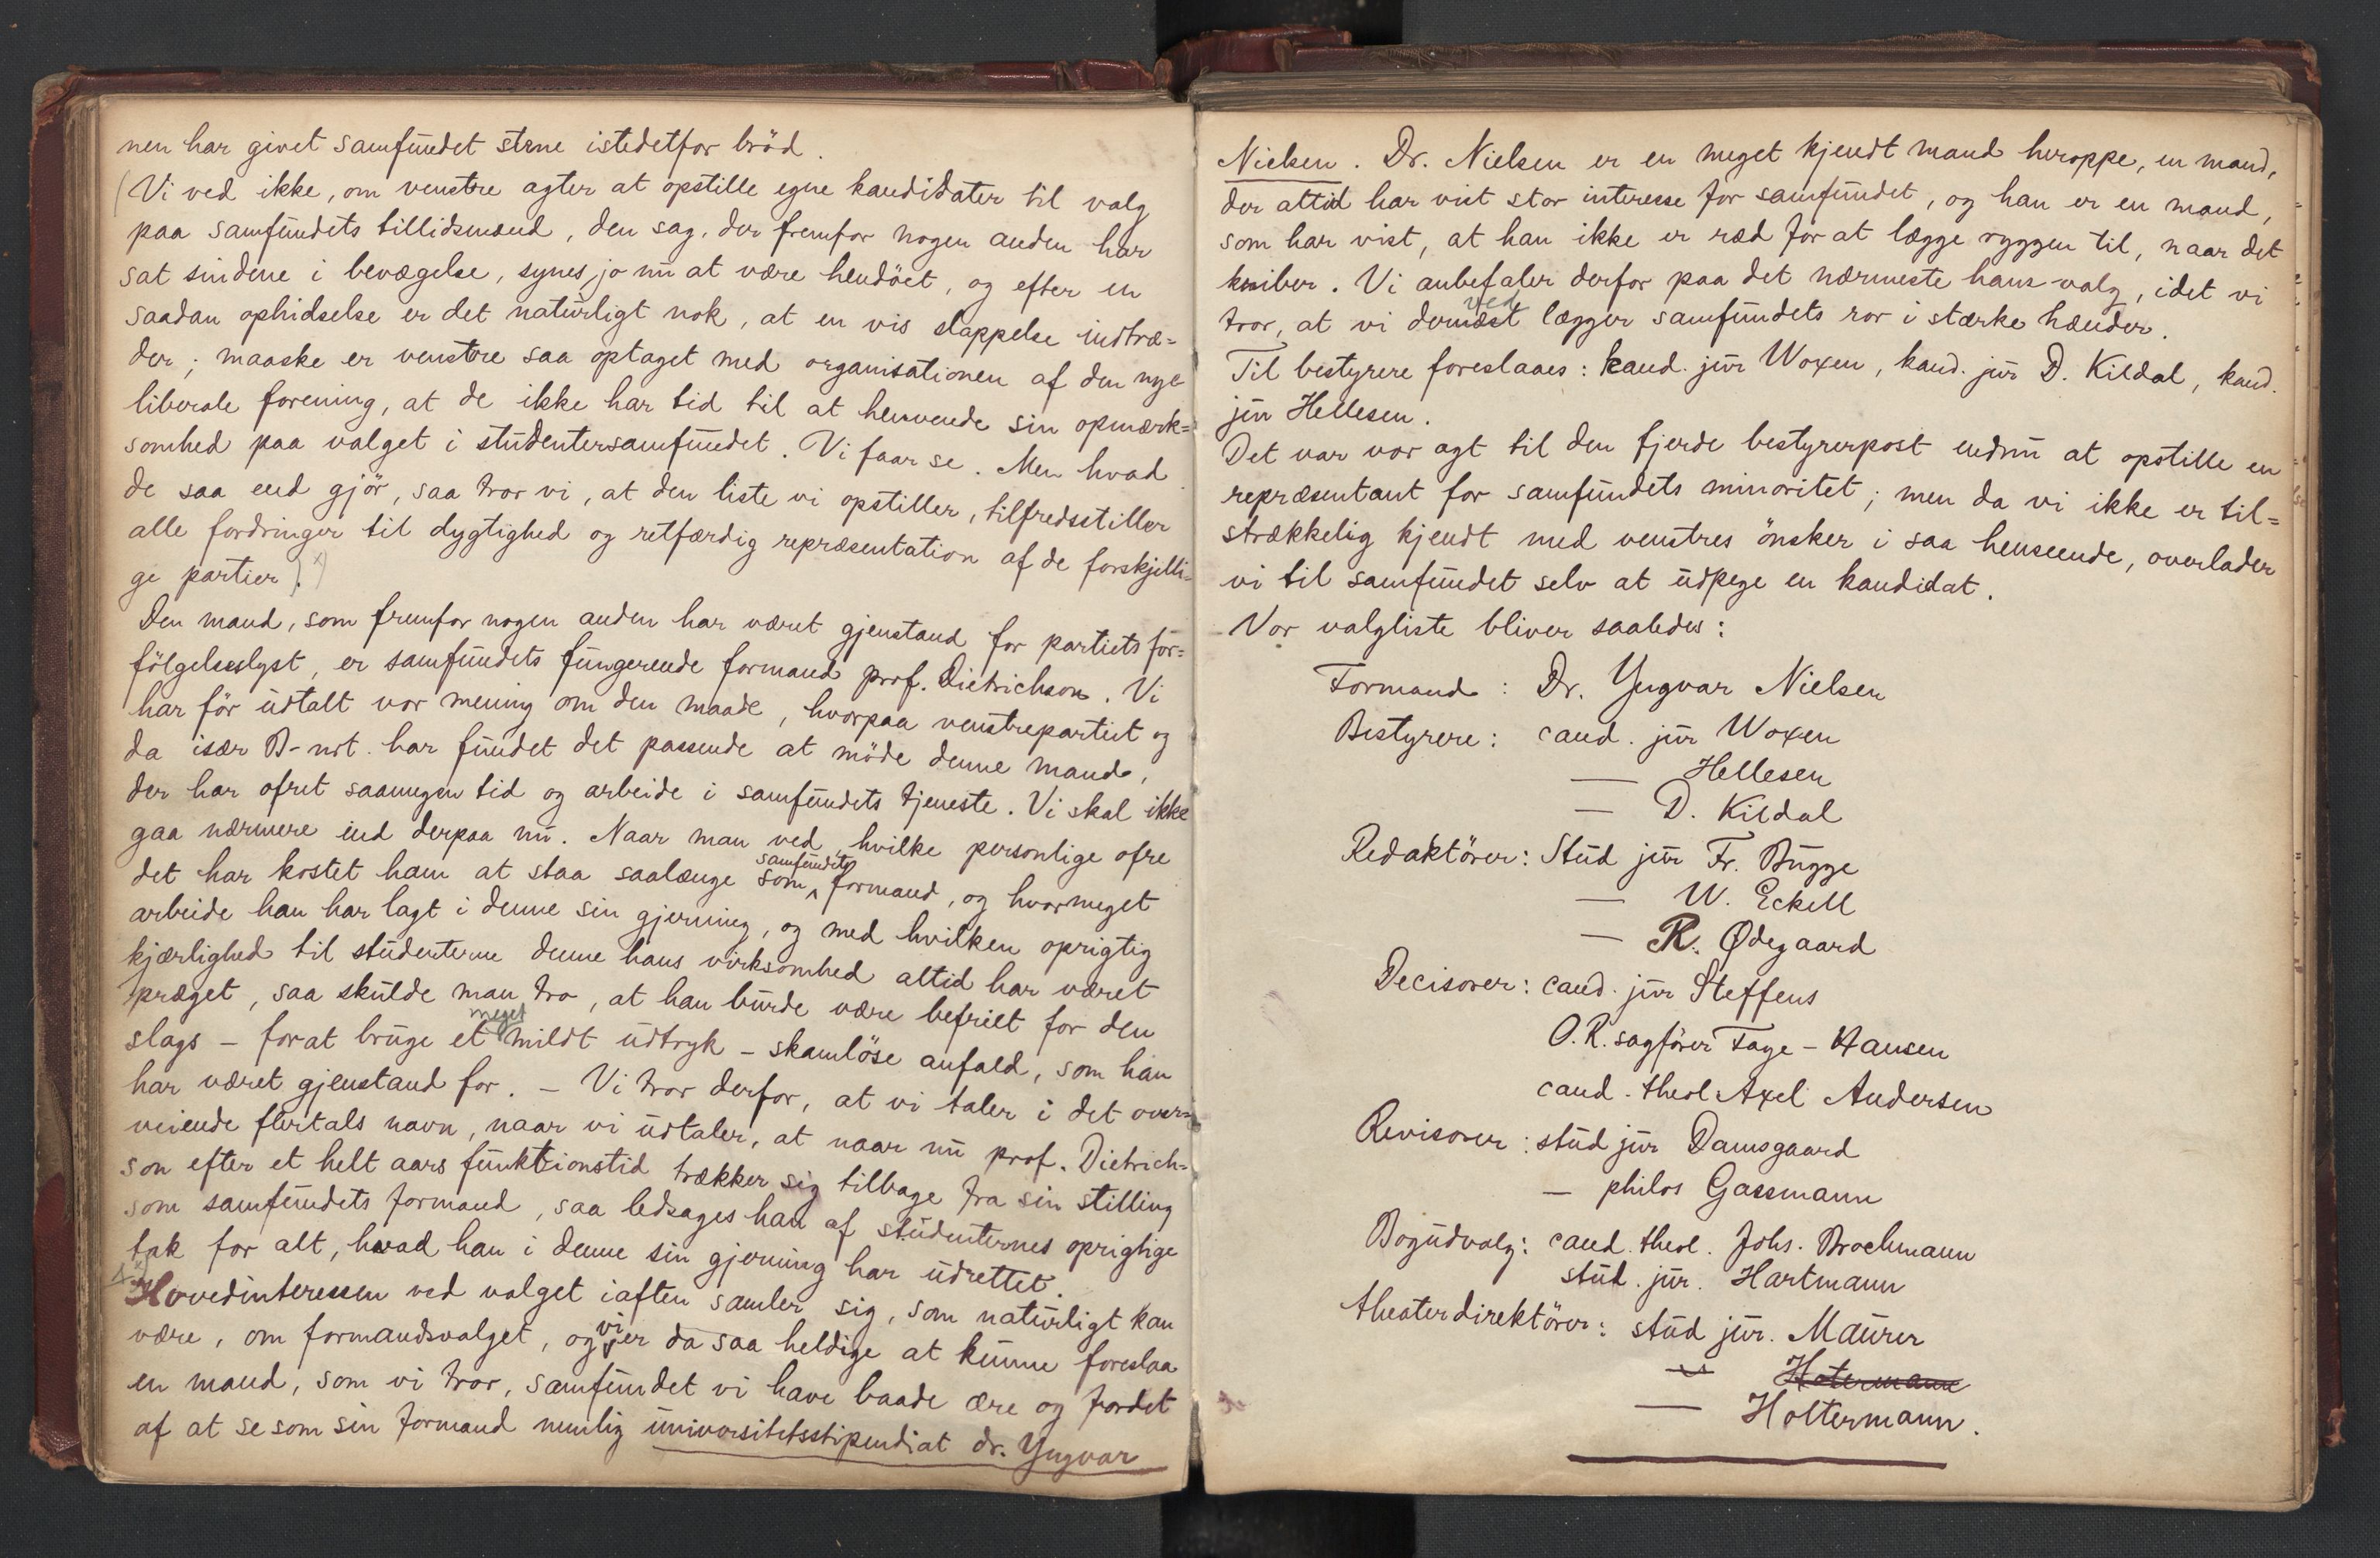 nen har givet samfundet stene istedetfor bröd.
(Vi ved ikke, om venstre agter at opstille egne kandidater til valg
paa samfundets tillidsmænd, den sag, der fremfor nogen anden har
sat sindene i bevægelse, synes jo nu at være hendöet, og efter en
saadan ophidselse er det naturligt nok, at en vis slappelse indtræ=
der; maaske er venstre saa optaget med organisationen af den nye
liberale forening, at de ikke har tid til at henvende sin opmærk=
somhed paa valget i studentersamfundet. Vi faar se. Men hvad
de saa end gjör, saa tror vi, at den liste vi opstiller, tilfredsstiller
alle fordringer til dygtighed og retfærdig repræsentation af de forskjelli=
ge partier). x)
Den mand, som fremfor nogen anden har været gjenstand for partiets for=
fölgelseslyst, er samfundets fungerende formand prof. Dietrichson. Vi
har för udtalt vor mening om den maade, hvorpaa venstrepartiet og
da især B-nrt. har fundet det passende at möde denne mand,
der har ofret saamegen tid og arbeide i samfundets tjeneste. Vi skal ikke
gaa nærmere ind derpaa nu. Naar man ved, hvilke personlige ofre
det har kostet ham at staa saalænge som samfundets formand, og hvormeget
arbeide han har lagt i denne sin gjerning, og med hvilken oprigtig
kjærlighed til studenterne denne hans virksomhed altid har været
præget, saa skulde man tro, at han burde være befriet for den
slags – forat bruge et meget mildt udtryk – skamlöse anfald, som han
har været gjenstand for. – Vi tror derfor, at vi taler i det over=
veiende flertals navn, naar vi udtaler, at naar nu prof. Dietrich=
son efter et helt aars funktionstid trækker sig tilbage fra sin stilling
som samfundets formand, saa ledsages han af studenternes oprigtige
tak for alt, hvad han i denne sin gjerning har udrettet.
Hovedinteressen ved valget iaften samler sig, som naturligt kan
være, om formandsvalget, og vi er da saa heldige at kunne foreslaa
en mand, som vi tror, samfundet vi have baade ære og fordel
af at se som sin formand nemlig universitetsstipendiat dr. Yngvar
Nielsen. Dr. Nielsen er en meget kjendt mand heroppe, en mand,
der altid har vist stor interesse for samfundet, og han er en mand,
som har vist, at han ikke er ræd for at lægge ryggen til, naar det
kniber. Vi anbefaler derfor paa det nærmeste hans valg, idet vi
tror, at vi derved lægger samfundets ror i stærke hænder.
Til bestyrere foreslaaes: kand. jur Woxen, kand. jur D. Kildal, kand.
jur Hellesen.
Det var vor agt til den fjerde bestyrerpost endnu at opstille en
repræsentant for samfundets minoritet; men da vi ikke er til=
strækkelig kjendt med venstres önsker i saa henseende, overlader
vi til samfundet selv at udpege en kandidat.
Vor valgliste bliver saaledes:
Formand: Dr. Yngvar Nielsen
Bestyrere: cand. jur Woxen
— Hellesen
— D. Kildal
Redaktörer: Stud jur Fr. Bugge
— W. Eckell
— R. Ødegaard
Decisorer: cand. jur Steffens
O.R. sagförer Faye-Hansen
cand. theol Axel Andersen
Revisorer: stud jur Damsgaard
— philos Gassmann
Bogudvalg: cand. theol. Johs. Brochmann
stud. jur. Hartmann
theaterdirektörer: stud jur. Maurer
— Hotermann
— Holtermann.